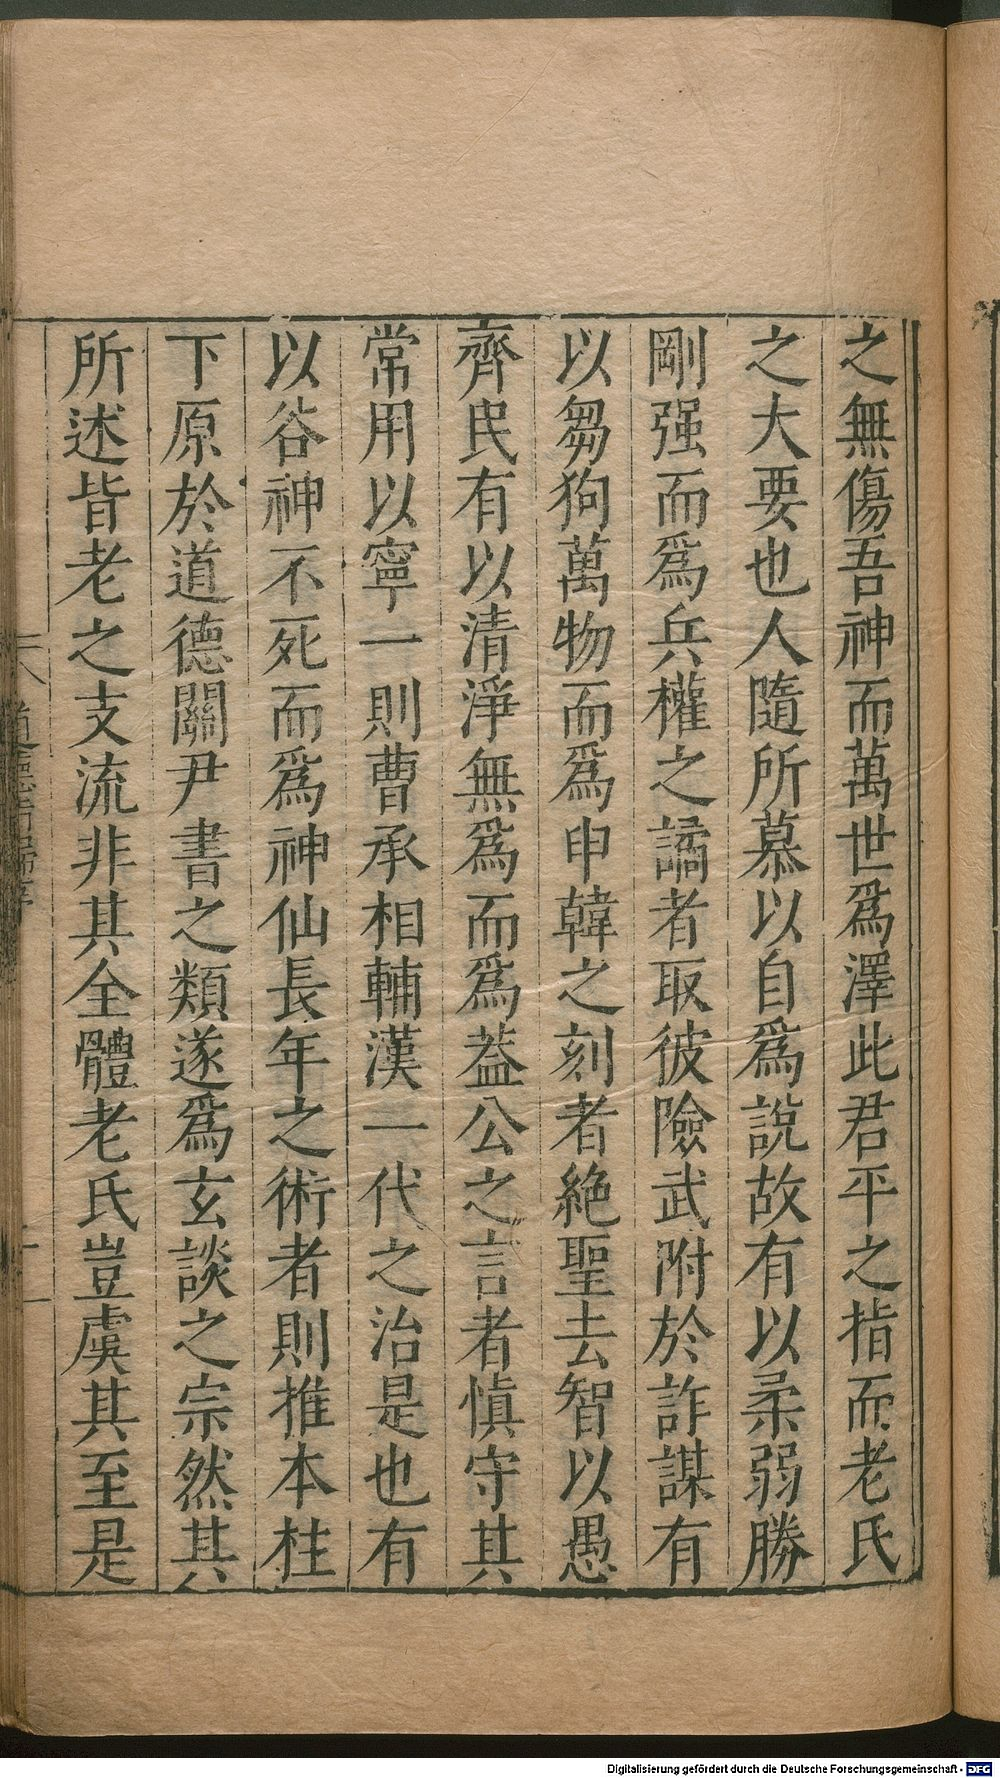 之無傷吾神而萬世爲澤此君平之指而老氏
之大要也人隨所慕以自爲說故有以柔弱勝
剛强而爲兵權之譎者取彼險武附於詐謀有
以芻狗萬物而爲申韓之刻者絶聖去智以愚
齊民有以清淨無爲而爲葢公之言者慎守其
常用以寧一則曹承相輔漢一代之治是也有
以谷神不死而爲神仙長年之術者則推本柱
下原於道德關尹書之類遂爲玄談之宗然其
所述皆老之支流非其全體老氏豈虞其至是
道德指歸序
二
Digitalisierung gefördert durch die Deutsche Forschungsgemeinschaft - DFG